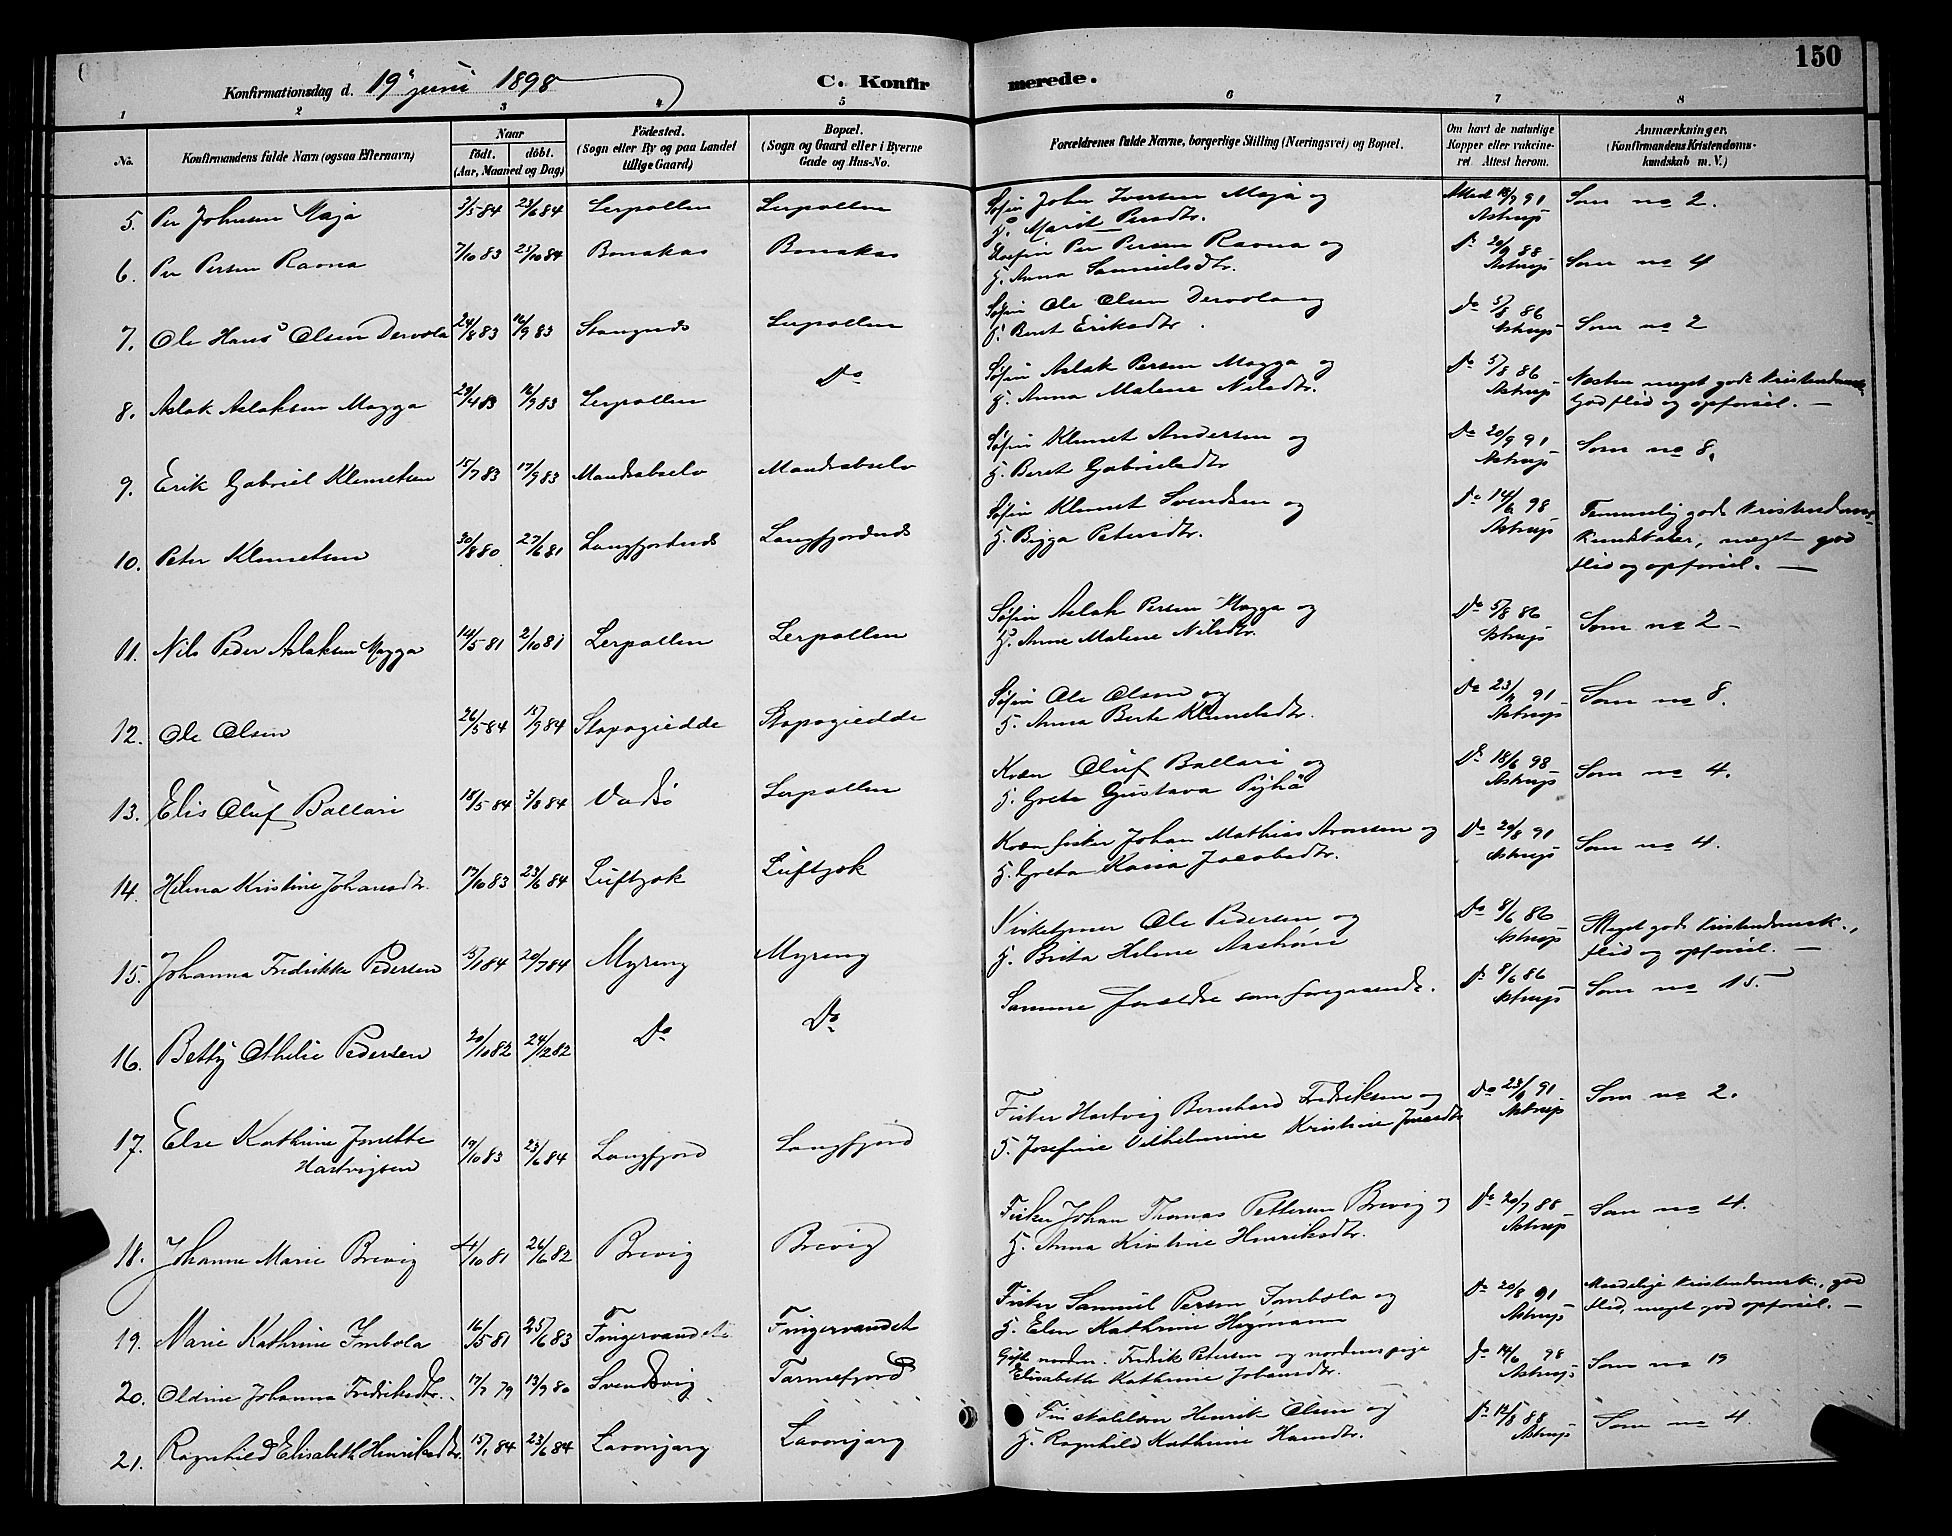 150
Konfirmationsdag d. 19 juni 1898 C. Konfirmerede.
1 2 3 4 5 6 7 8
No. Konfirmandens fulde Navn (ogsaa Efternavn) Naar födt. döbt. (Aar, Maaned og Dag) Födested. (Sogn eller By og paa Landet tillige Gaard) Bopæl. (Sogn og Gaard eller i Byerne Gade og Hus-No. Forældrenes fulde Navne, borgerlige Stilling (Næringsvei) og Bopæl. Om havt de naturlige Kopper eller vakcineret. Attest herom. Anmærkninger. (Konfirmandens Kristendomskundskab m. V.)
5. Per Johnsen Maja 3/5 84 23/6 84 Lerpollen Lerpollen Søfin John Iversen Maja og Astrup Som no 2.
H. Marit Persdtr.
6. Per Persen Ravna 7/10 83 25/10 84 Bonakas Bonakas Per Persen Ravna og Do 20/9 88 Astrup Som no 4
H. Anna Samuelsdtr.
7. Ole Hans Olsen Dervola 24/8 83 16/9 83 Stangnes Lerpollen Søfin Ole Olsen Dervola og Do 5/8 86 Astrup Som no 2
H. Beret Eriksdtr.
8. Aslak Aslaksen Magga 29/4 83 16/9 83 Lerpollen Do Søfin Aslak Persen Magga og Do 5/8 86 Astrup Næsten meget gode Kristendomsk.
H. Anna Malene Nilsdtr. God flid og opførsel. —
9. Erik Gabriel Klemetsen 15/7 83 17/9 83 Mandrabselv Mandrabselv Søfin Klemet Andersen og Do 20/9 91 Astrup Som no 8.
H. Beret Gabrielsdtr
10. Peter Klemetsen 30/8 80 27/6 81 Langfjordnes Langfjordnes Søfin Klemet Svendsen og Do 14/6 98 Astrup Temmelig gode Kristendoms-
H. Bigga Petersdtr. kundskaber, meget god
flid og opførsel. —
11. Nils Peder Aslaksen Magga 14/5 81 2/10 81 Lerpollen Lerpollen Søfin Aslak Persen Magga og Do 5/8 86 Astrup Som no 2 -
H. Anne Malene Nilsdtr.
12. Ole Olsen 26/5 84 15/9 84 Stapogiedde Stapogiedde Søfin Ole Olsen og Do Astrup Som no 8.
H. Anna Berte Klemetsdtr.
13. Elis Oluf Ballari 18/5 84 3/8 84 Vadsø Lerpollen Kvæn Oluf Ballari og Do 18/6 98 Astrup Som no 4.
H. Greta Gustava Pyhä
14. Helena Kristine Johansdtr. 17/10 83 23/6 84 Luftjok Luftjok Kvæn fisker Johan Mathias Aronsen og Do 20/8 91 Astrup Som no 4.
H. Greta Kaisa Jacobsdtr.
15. Johanna Fredrikke Pedersen 15/1 84 20/7 84 Myreng Myreng Kirketjener Ole Pedersen og Do 8/6 86 Astrup Meget gode Kristendomsk.,
H. Brita Helene flid og opførsel. —
16. Betty Othelie Pedersen 20/10 82 24/12 82 Do Do Samme forældre som foregaaende. Do 8/6 86 Astrup Som no 15.
17. Else Kathrine Jonette Hartvigsen 19/10 83 23/6 84 Langfjord Langfjord Fisker Hartvig Bernhard Fredriksen og Do Astrup Som no 2.
H. Josefine Vilhelmine Kristine
18. Johanne Marie Brevig 4/10 81 26/6 82 Brevig Brevig Fisker Johan Thomas Pettersen Brevig og Do 20/7 88 Astrup Som no 4.
H. Anna Kirstine Henriksdtr.
19. Marie Kathrine Imbola 16/5 81 25/6 83 Fingervandet Fingervandet Fisker Samuel Persen Imbola og Do 20/8 91 Astrup Maadelige Kristendomsk., god
H. Elen Kathrine Hegmann flid, meget god opførsel. —
20. Oldine Johanna Fredriksdtr. 17/7 79 13/9 80 Svendsvig Tarmefjord Gift nordm. Fredrik Petersen og nordmspige Do 14/6 98 Astrup Som no 19
Elisabeth Kathrine Johansdtr.
21. Ragnhild Elisabeth Henriksdtr. 15/1 84 23/6 84 Lavonjarg Lavonjarg Fin Henrik Olsen og Do 12/8 88 Astrup Som no 4
H. Ragnhild Kathrine Hansdtr.